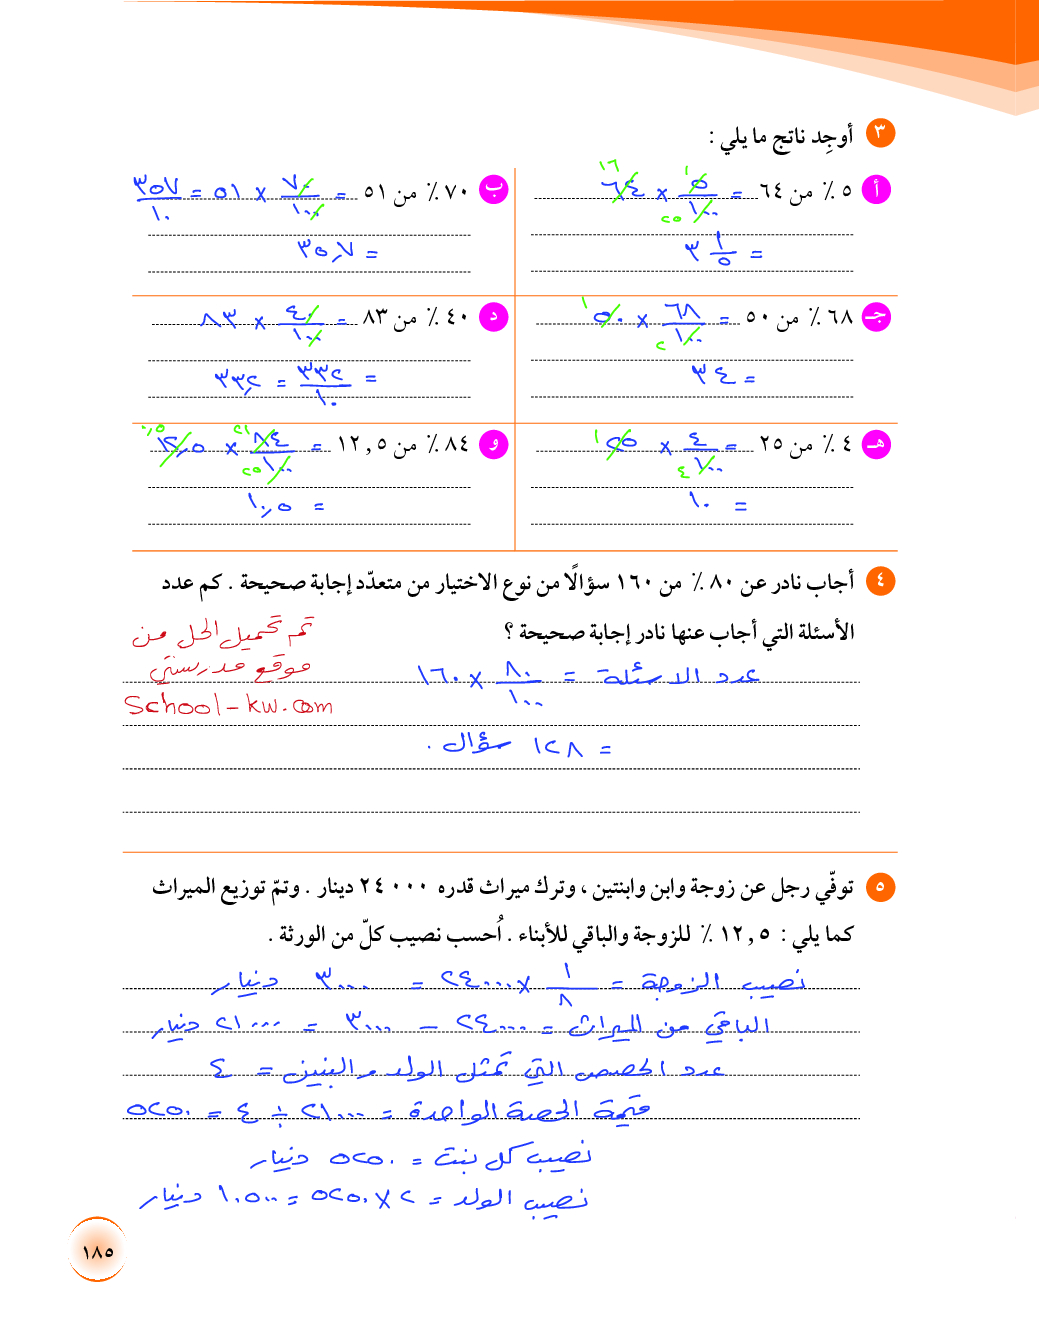 ٣ أوجِد ناتج ما يلي :
أ ٥ ٪ من ٦٤ = ٥/١٠٠ × ٦٤
١ ١٦ ٢٥
= ٣ ١/٥
ب ٧٠ ٪ من ٥١ = ٧٠/١٠٠ × ٥١ = ٣٥٧/١٠
= ٣٥,٧
جـ ٦٨ ٪ من ٥٠ = ٦٨/١٠٠ × ٥٠
١ ٢
= ٣٤
د ٤٠ ٪ من ٨٣ = ٤٠/١٠٠ × ٨٣
= ٣٣٢/١٠ = ٣٣,٢
هـ ٤ ٪ من ٢٥ = ٤/١٠٠ × ٢٥
١ ٤
= ١٠
و ٨٤ ٪ من ١٢,٥ = ٨٤/١٠٠ × ١٢,٥
٢١ ٠,٥ ٢٥
= ١٠,٥
٤ أجاب نادر عن ٨٠ ٪ من ١٦٠ سؤالًا من نوع الاختيار من متعدّد إجابة صحيحة . كم عدد
الأسئلة التي أجاب عنها نادر إجابة صحيحة ؟
تم تحميل الحل من
موقع مدرستي
School-kw.com
عدد الاسئلة = ٨٠/١٠٠ × ١٦٠
= ١٢٨ سؤال .
٥ توفّي رجل عن زوجة وابن وابنتين ، وترك ميراث قدره ٢٤٠٠٠ دينار . وتمّ توزيع الميراث
كما يلي : ١٢,٥ ٪ للزوجة والباقي للأبناء . اُحسب نصيب كلّ من الورثة .
نصيب الزوجة = ١/٨ × ٢٤٠٠٠ = ٣٠٠٠ دنيار
الباقي من الميراث = ٢٤٠٠٠ – ٣٠٠٠ = ٢١٠٠٠ دنيار
عدد الحصص التي تمثل الولد والبنتين = ٤
قيمة الحصة الواحدة = ٢١٠٠٠ ÷ ٤ = ٥٢٥٠
نصيب كل بنت = ٥٢٥٠ دنيار
نصيب الولد = ٢ × ٥٢٥٠ = ١٠٥٠٠ دنيار
١٨٥